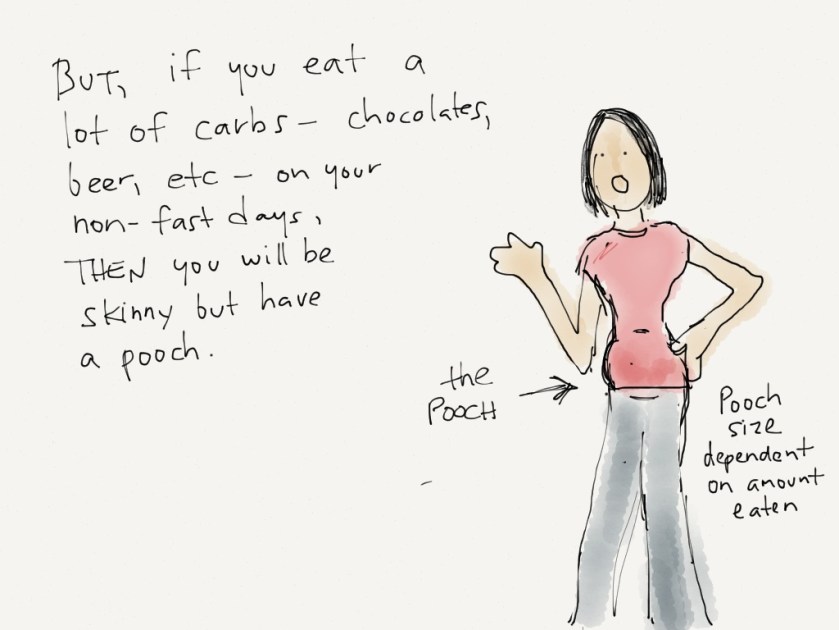 BUT, if you eat a
lot of carbs - chocolates,
beer, etc - on your
non-fast days,
THEN you will be
skinny but have
a pooch.
the
POOCH
Pooch
size
dependent
on amount
eaten